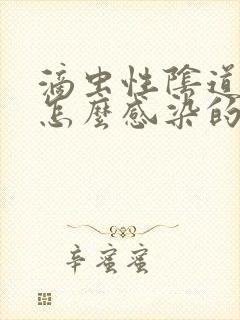 滴虫性陰道
怎麼感染的
辛蜜蜜